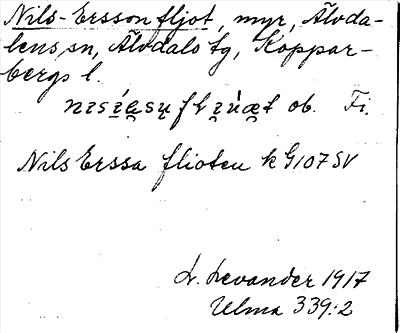 Nils-Ersson fljot, myr, Älvda-
lens sn, Älvdals tg, Koppar-
bergs l.
ob. Fi.
Nils Erssa flioten k G107 SV
L. Levander 1917
Ulma 339:2